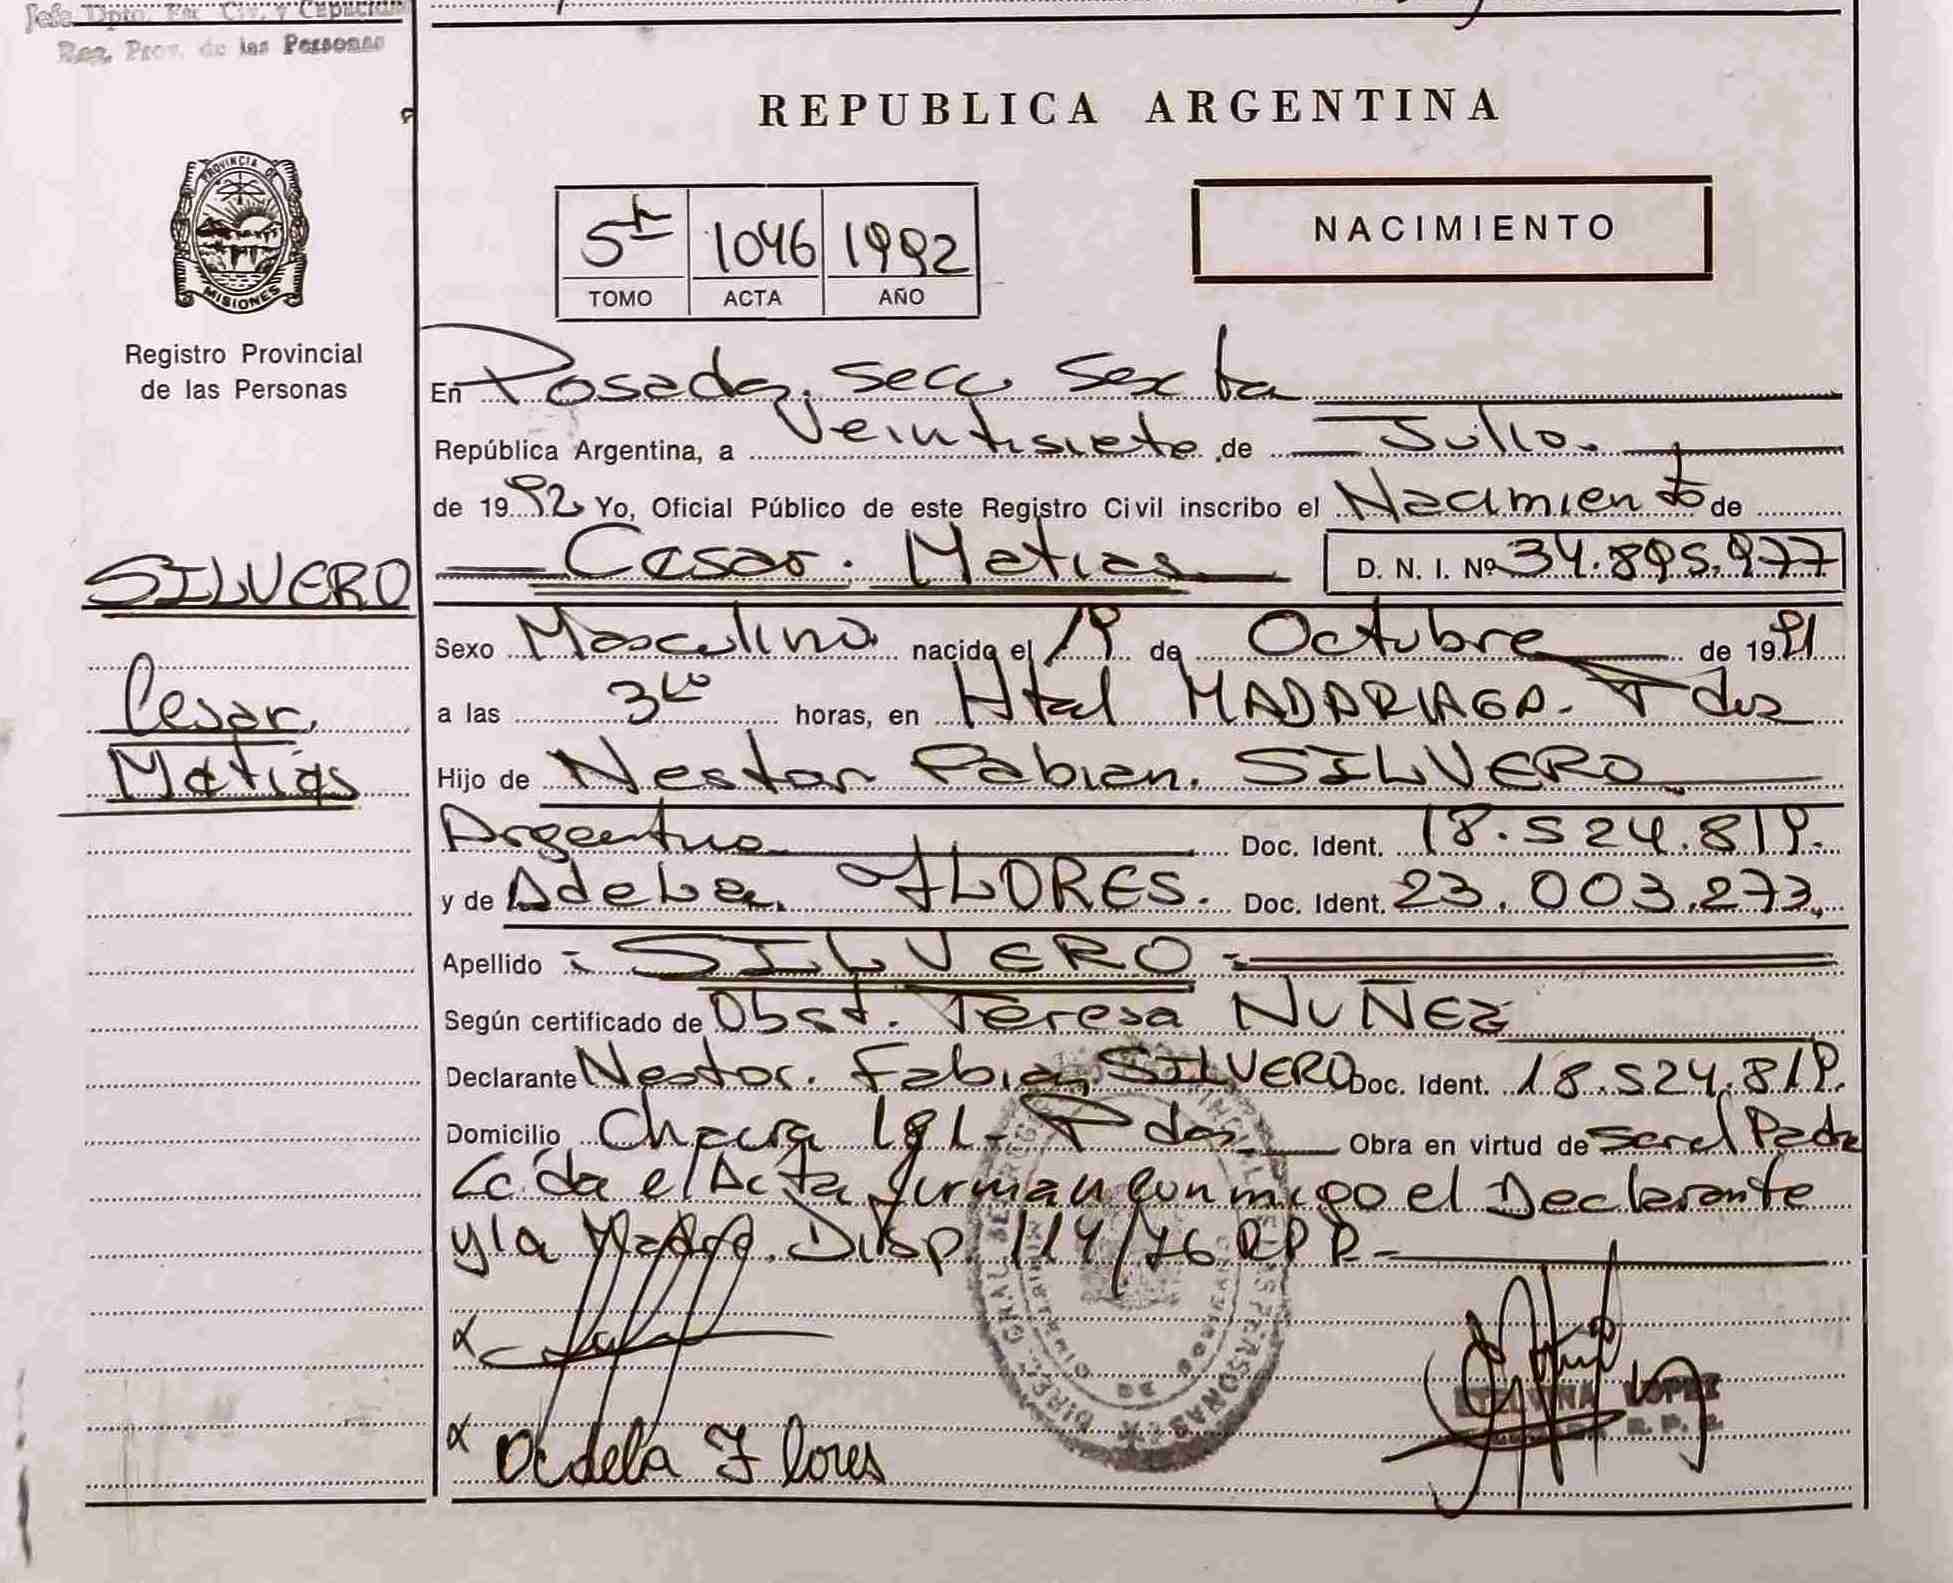 Jefe Dpto. Est. Civ. y Capacidad
Reg. Prov. de las Personas
REPUBLICA ARGENTINA
PROVINCIA DE
MISIONES
Registro Provincial
de las Personas
5to 1046 1992
TOMO ACTA AÑO
NACIMIENTO
SILVERO
Cesar
Matias
En Posadas, secc sexta
República Argentina, a Veintisiete de Julio
de 1992 Yo, Oficial Público de este Registro Civil inscribo el Nacimiento de
Cesar Matias D. N. I. Nº 34.895.977
Sexo Masculino nacido el 19 de Octubre de 1991
a las 3 horas, en Htal MADARIAGA. Pdas
Hijo de Nestor Fabian SILVERO
Argentino Doc. Ident. 18.524.819.
y de Adela FLORES. Doc. Ident. 23.003.273
Apellido SILVERO
Según certificado de Obst. Teresa NUÑEZ
Declarante Nestor Fabian SILVERO Doc. Ident. 18.524.819.
Domicilio Chacra 181 - Pdas Obra en virtud de ser el Padre
Leída el Acta firman conmigo el Declarante
y la Madre. Disp. 114/76 RPP
Adela Flores
LOPEZ